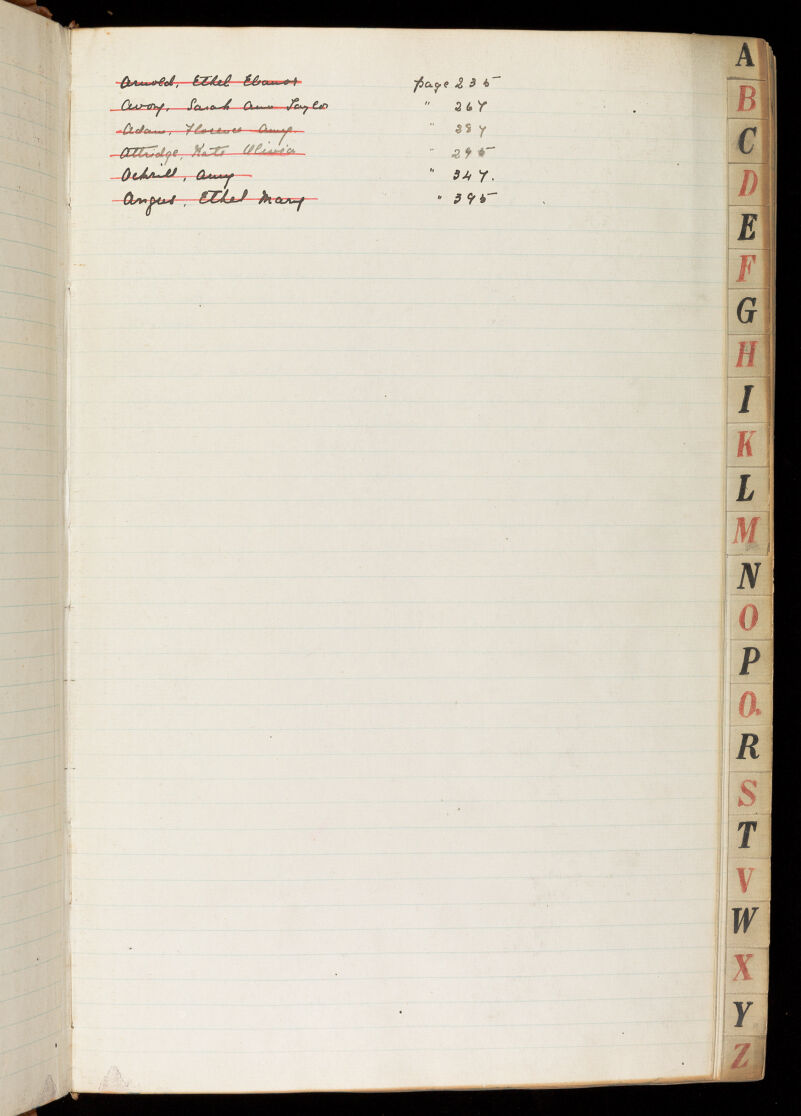 Arnold, Ethel Eleanor page 235
Avory, Sarah Ann Taylor " 267
Adams, Florence Amy " 287
Attridge, Kate Olivia " 295
Ockrill, Amy " 347.
Angus, Ethel Mary " 395
A
B
C
D
E
F
G
H
I
K
L
M
N
O
P
Q.
R
S
T
V
W
X
Y
Z